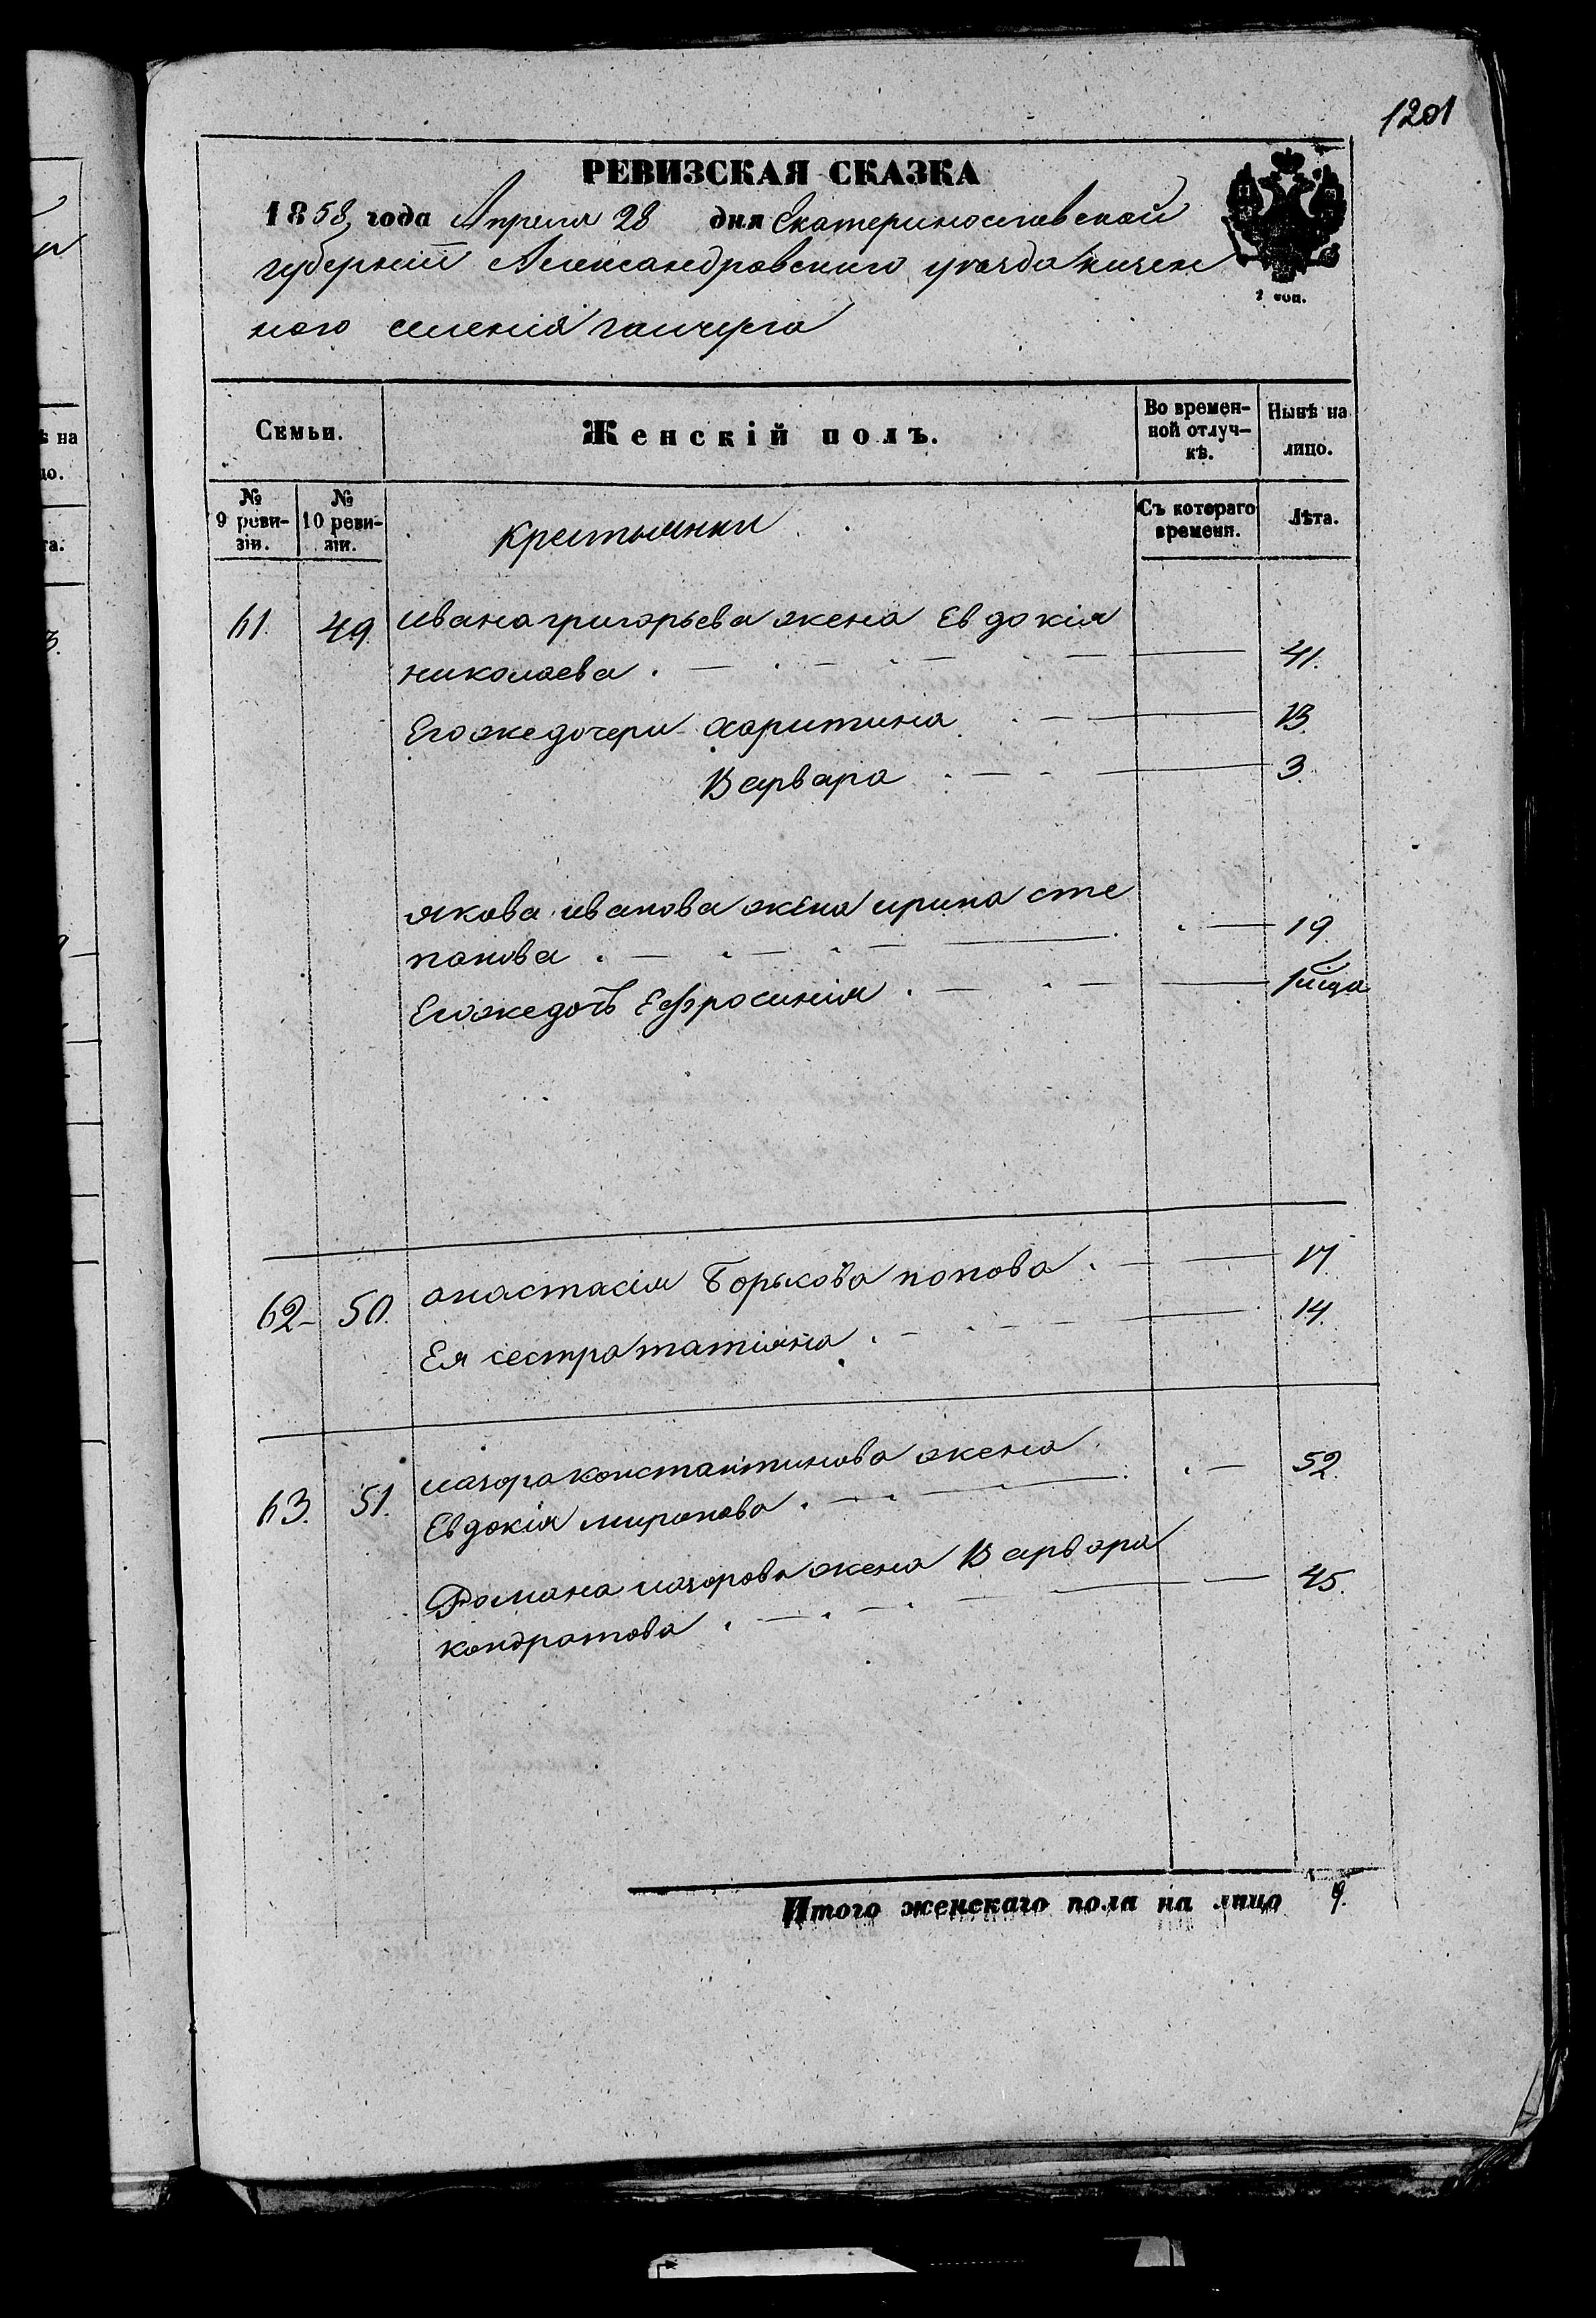 1201
РЕВИЗСКАЯ СКАЗКА
1858 года Апреля 28 дня Екатеринославской
губернии Александровского уезда казен
ного селения гайчерга
2 коп.
Семьи.
Женскій полъ.
Во времен-
ной отлуч-
кѣ.
Нынѣ на
лицо.
№
9 реви-
зіи.
№
10 реви-
зіи.
крестьянки
Съ котораго
времени.
Лѣта.
61. 49. ивана григорьева жена Евдокія
николаева. 41.
Его же дочери харитина 13.
Варвара 3.
якова иванова жена ирина сте
панова. 19.
Его же дочь Ефросинія. 1 мца
62 50. анастасія Борисова попова. 17
Ея сестра татіяна. 14.
63. 51. назара константинова жена
Евдокія миронова. 52.
Романа назарова жена Варвара
кондратова. 45.
Итого женскаго пола на лицо 9.
ѣ на
цо.
та.